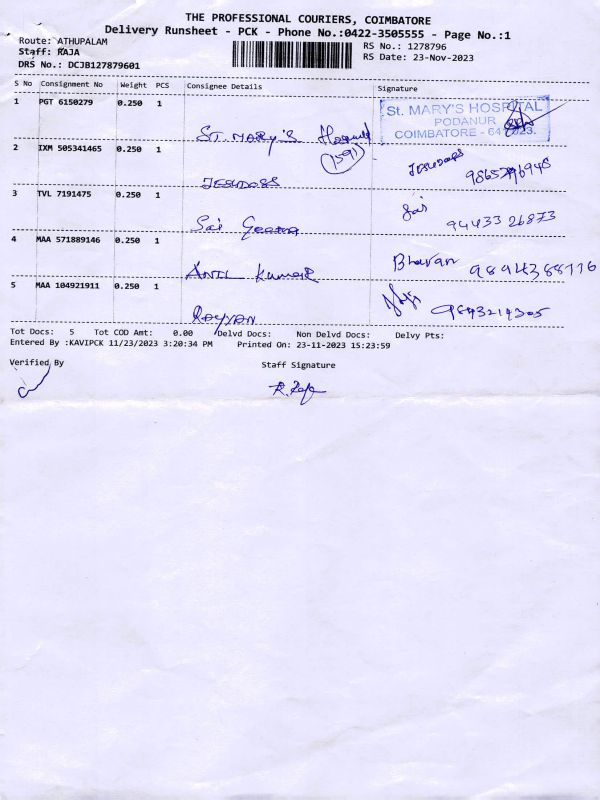 THE PROFESSIONAL COURIERS, COIMBATORE
Delivery Runsheet - PCK - Phone No.:0422-3505555 - Page No.:1
Route: ATHUPALAM
RS No.: 1278796
Staff: RAJA
RS Date: 23-Nov-2023
DRS No.: DCJB127879601
S No Consignment No Weight PCS Consignee Details Signature
1 PGT 6150279 0.250 1
St. MARY'S HOSPITAL
PODANUR
COIMBATORE - 641023.
ST. MARY'S Hospital
(1591)
2 IXM 505341465 0.250 1
JESUDOSS
JESUDOSS
3 TVL 7191475 0.250 1
Sai Geetha
Sai
94433 26873
4 MAA 571889146 0.250 1
ANIL KUMAR
Bhavan 9894388776
5 MAA 104921911 0.250 1
RAYYAN
9843214305
Tot Docs: 5 Tot COD Amt: 0.00 Delvd Docs: Non Delvd Docs: Delvy Pts:
Entered By :KAVIPCK 11/23/2023 3:20:34 PM Printed On: 23-11-2023 15:23:59
Verified By Staff Signature
R. Raja